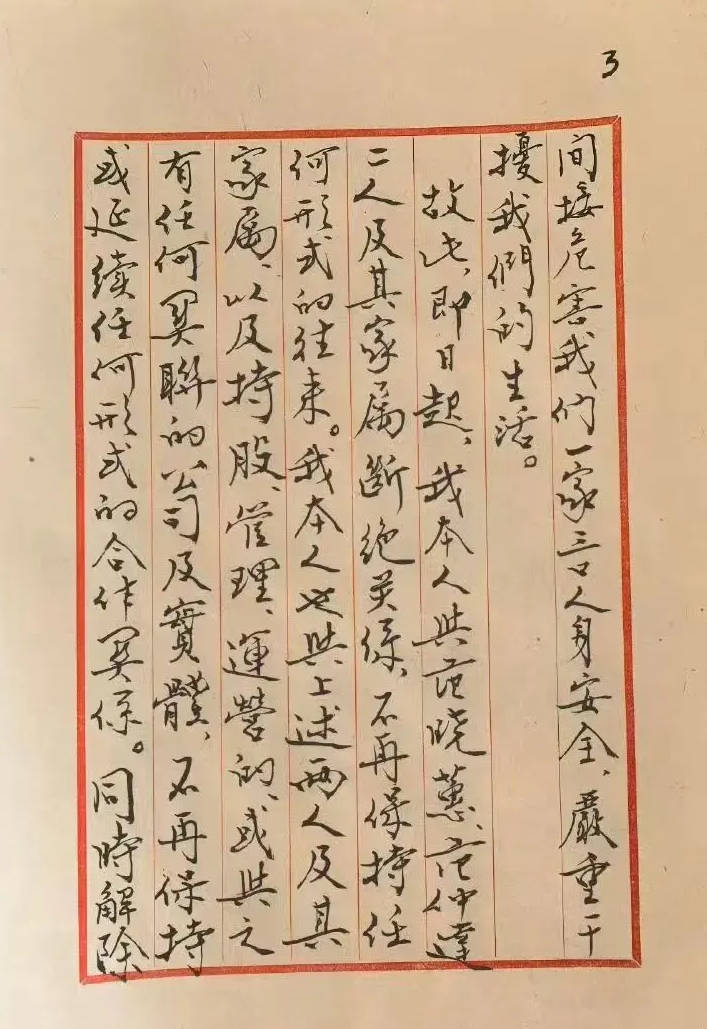 3
间接危害我们一家三口人身安全、嚴重干
擾我們的生活。
故此、即日起、我本人與范晓蕙、范仲達
二人及其家属斷绝关係、不再保持任
何形式的往来。我本人也與上述两人及其
家属、以及持股、管理、運營的、或與之
有任何関聯的公司及實體、不再保持
或延續任何形式的合作関係。同時解除